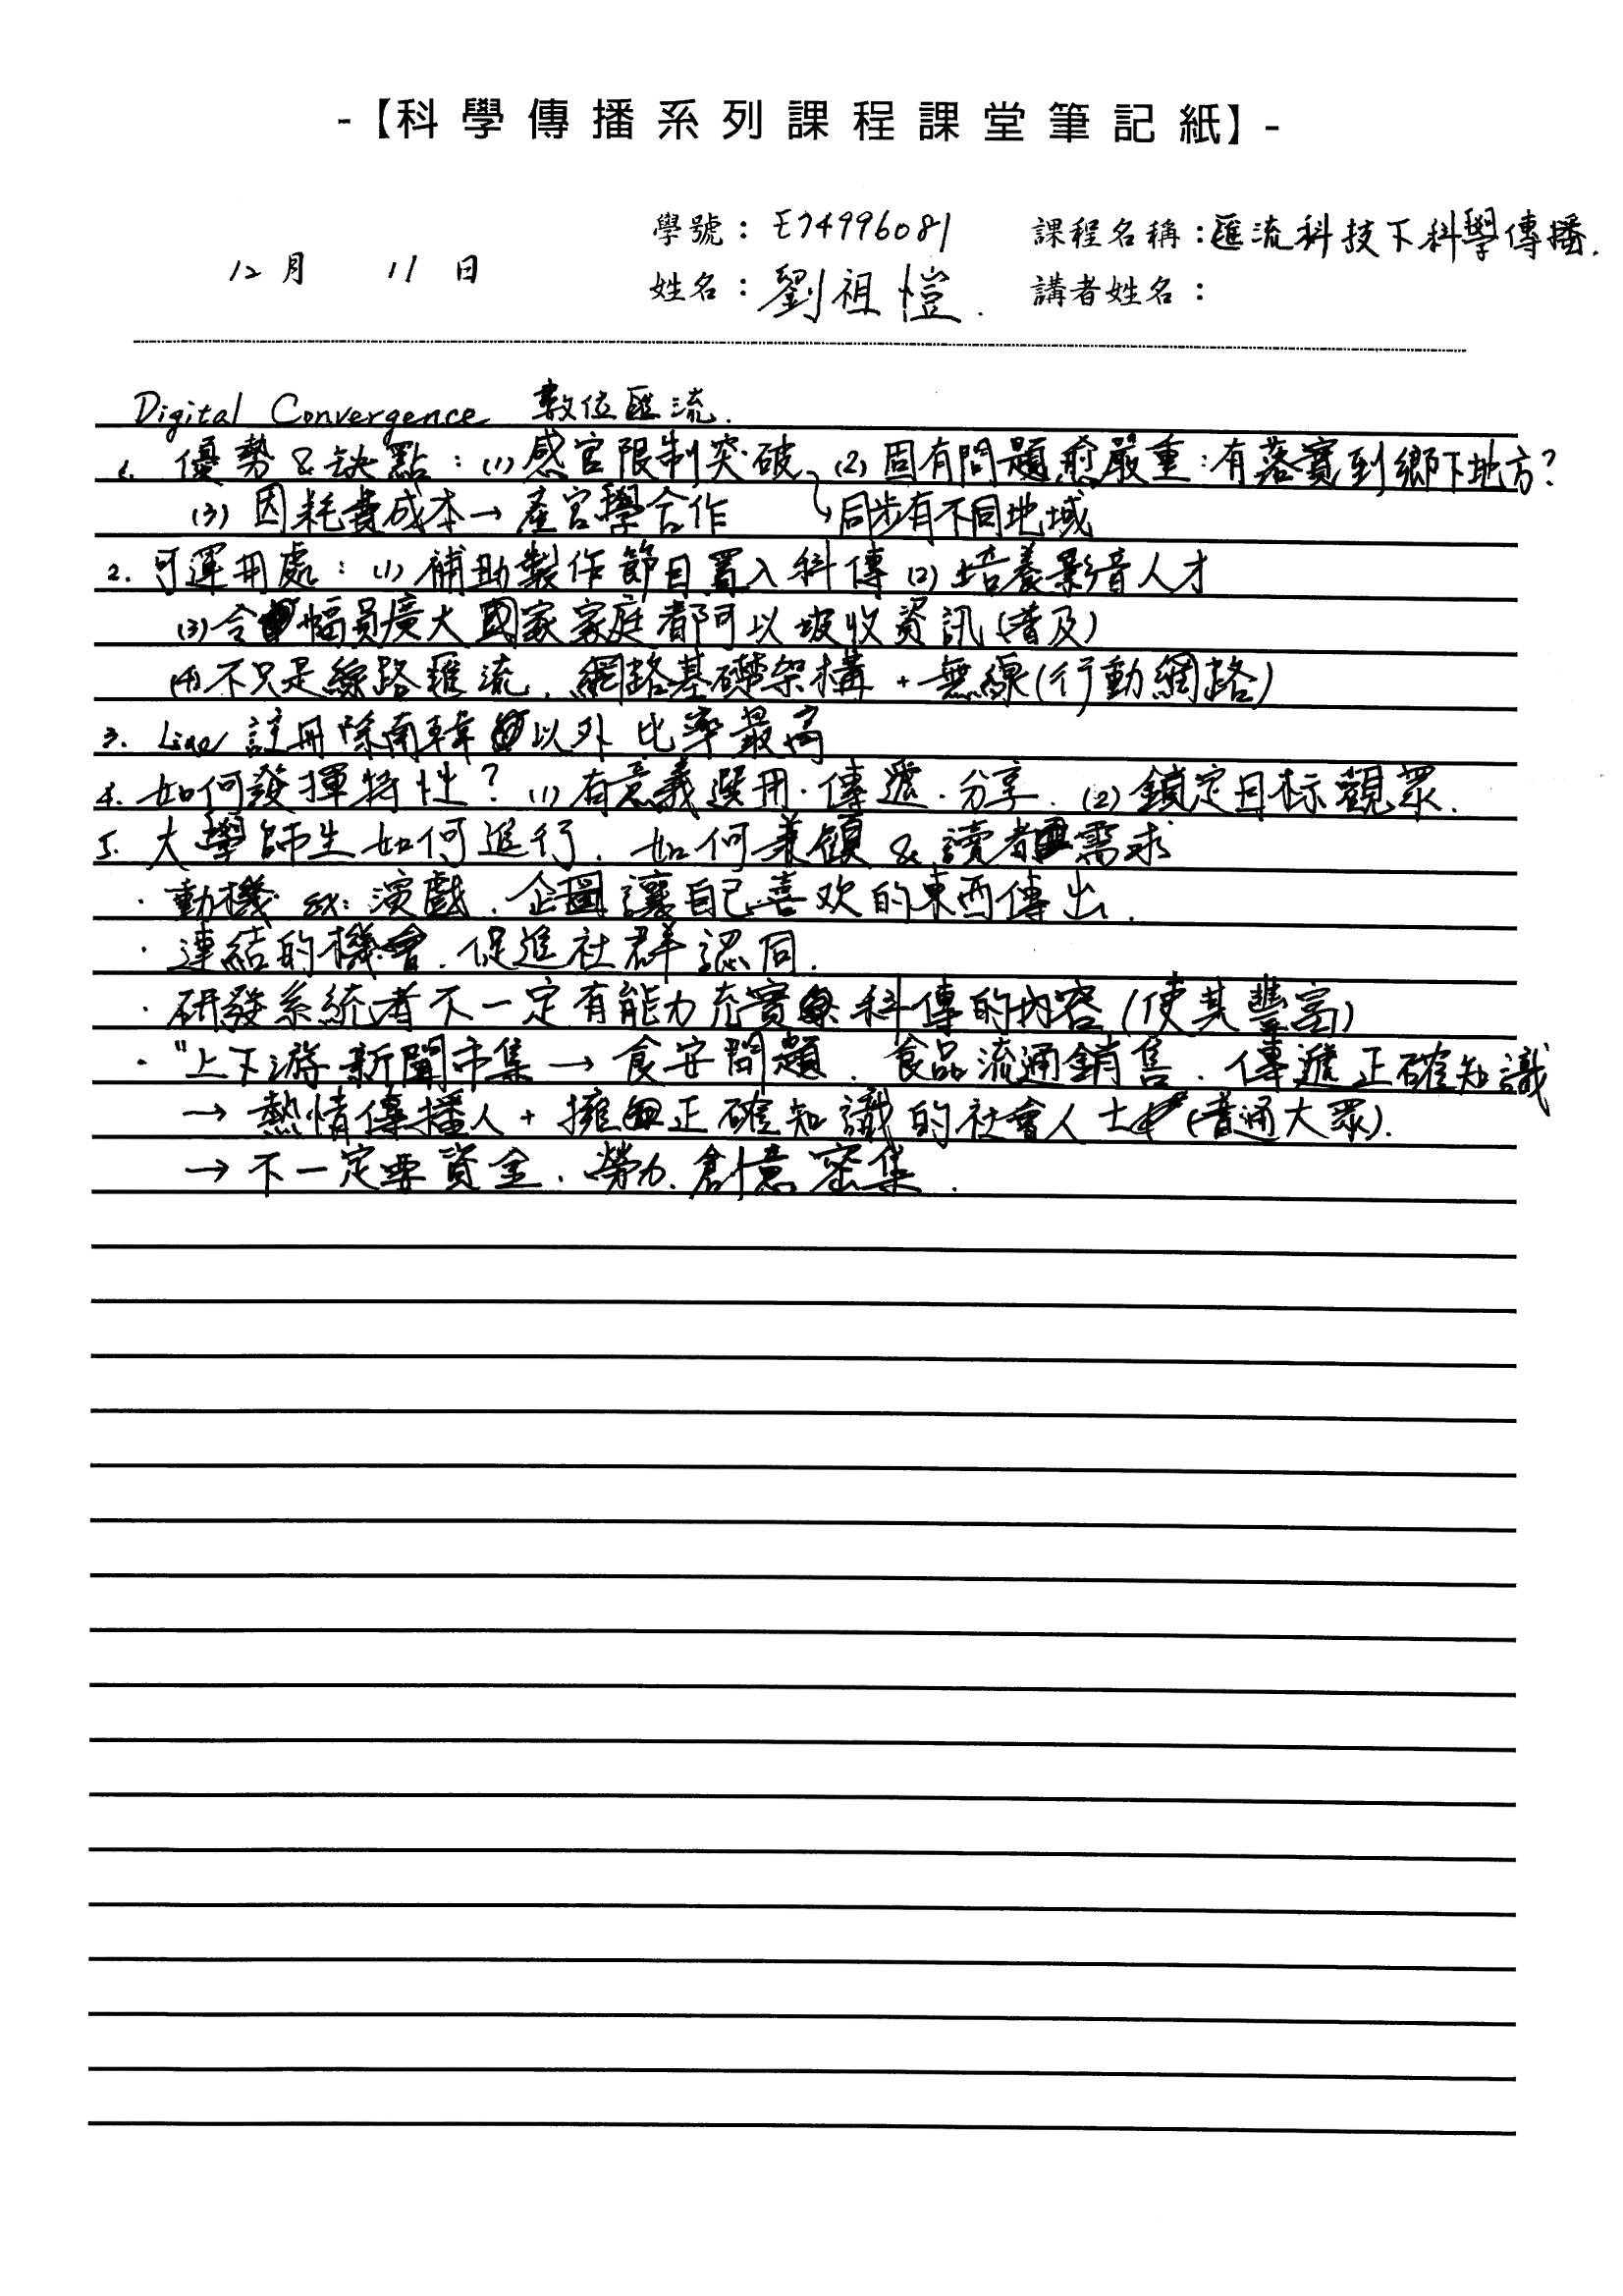 -【科學傳播系列課程課堂筆記紙】-
學號：E74996081 課程名稱：匯流科技下科學傳播.
12月 11日 姓名：劉祖愷. 講者姓名：
Digital Convergence 數位匯流.
1. 優勢&缺點：(1) 感官限制突破、(2) 固有問題愈嚴重：有落實到鄉下地方？
(3) 因耗費成本→產官學合作 ↳同步有不同地域
2. 可運用處：(1) 補助製作節目置入科傳 (2) 培養影音人才
(3) 令幅員廣大國家家庭都可以坡收資訊(普及)
(4) 不只是線路匯流. 網路基礎架構 + 無線(行動網路)
3. Line 註冊除南韓以外比率最高
4. 如何發揮特性？(1) 有意義選用.傳遞.分享. (2) 鎖定目标觀眾.
5. 大學師生如何進行. 如何兼顧 & 讀者需求
· 動機 ex: 演戲. 企圖讓自己喜欢的東西傳出.
· 連結的機會. 促進社群認同.
· 研發系統者不一定有能力充實科傳的內容(使其豐富)
· "上下游新聞市集→食安問題. 食品流通銷售. 傳遞正確知識
→ 熱情傳播人 + 擁正確知識的社會人士(普通大眾).
→ 不一定要資金. 勞力. 創意密集.